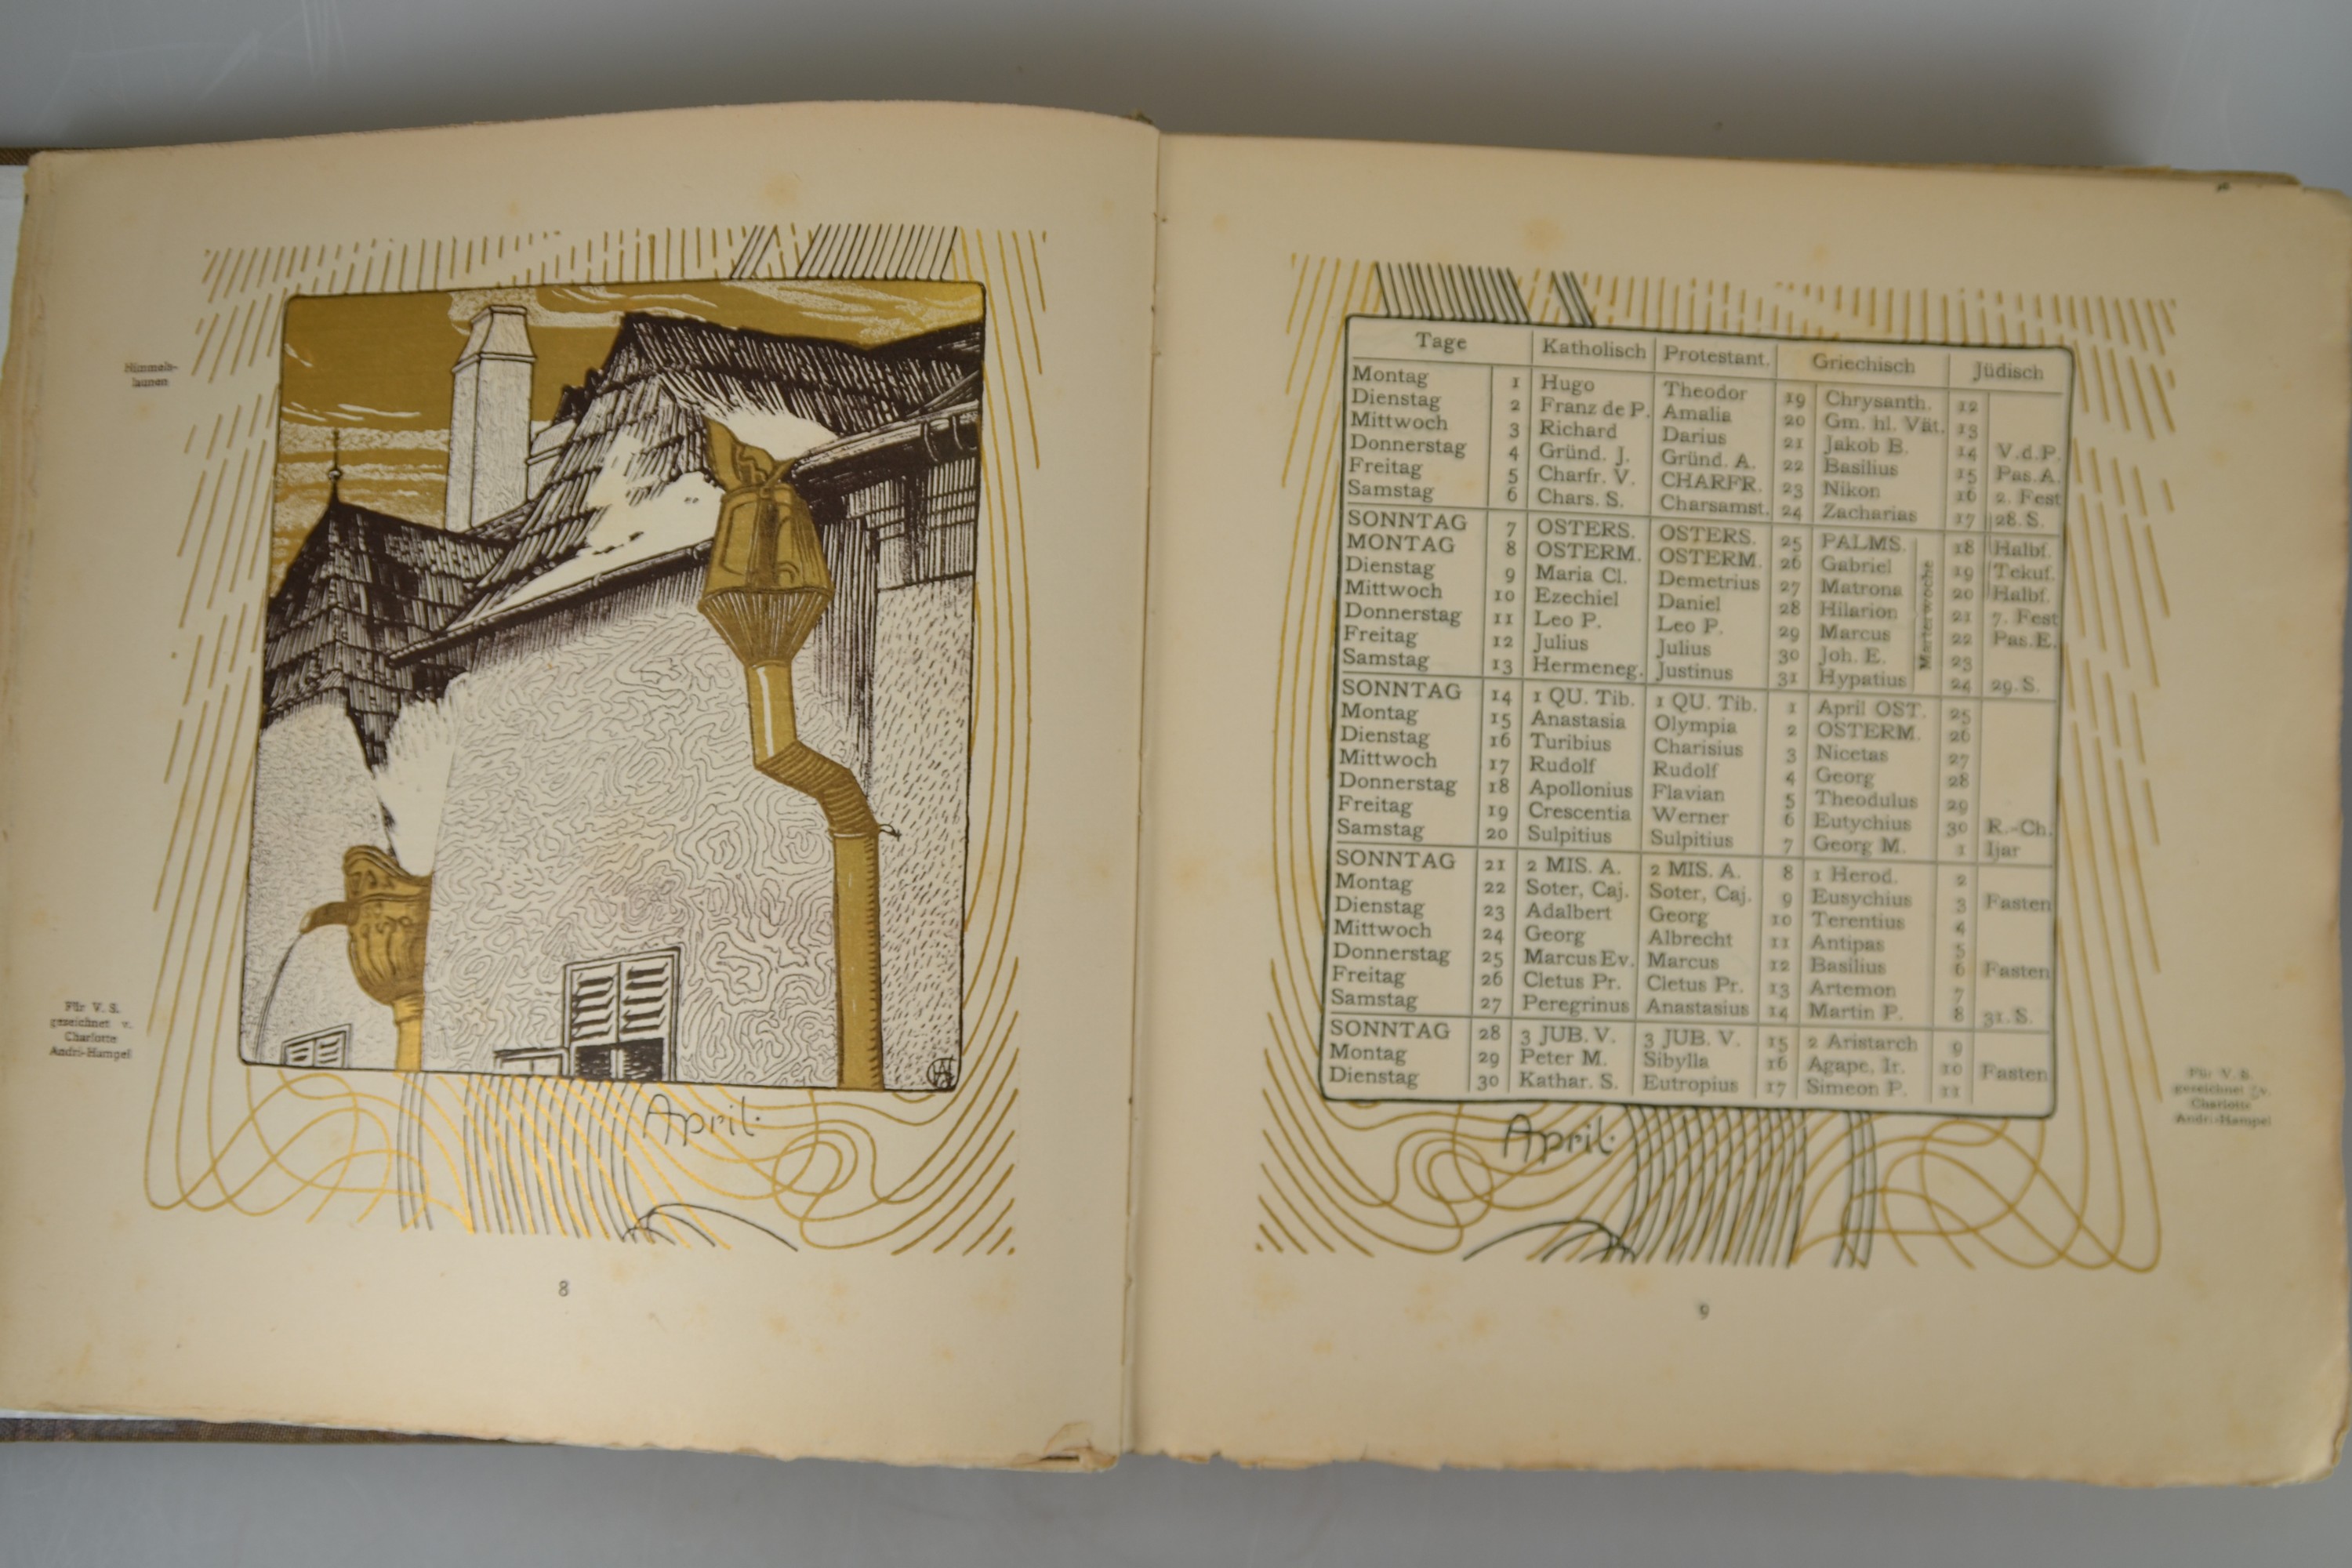 Himmels-
launen
Für V. S.
gezeichnet v.
Charlotte
Andri-Hampel
April.
8
Tage Katholisch Protestant. Griechisch Jüdisch
Montag 1 Hugo Theodor 19 Chrysanth. 12
Dienstag 2 Franz de P. Amalia 20 Gm. hl. Vät. 13
Mittwoch 3 Richard Darius 21 Jakob B. 14 V.d.P.
Donnerstag 4 Gründ. J. Gründ. A. 22 Basilius 15 Pas.A.
Freitag 5 Charfr. V. CHARFR. 23 Nikon 16 2. Fest
Samstag 6 Chars. S. Charsamst. 24 Zacharias 17 28. S.
SONNTAG 7 OSTERS. OSTERS. 25 PALMS. 18 Halbf.
MONTAG 8 OSTERM. OSTERM. 26 Gabriel 19 Tekuf.
Dienstag 9 Maria Cl. Demetrius 27 Matrona 20 Halbf.
Mittwoch 10 Ezechiel Daniel 28 Hilarion 21 7. Fest
Donnerstag 11 Leo P. Leo P. 29 Marcus 22 Pas.E.
Freitag 12 Julius Julius 30 Joh. E. 23
Samstag 13 Hermeneg. Justinus 31 Hypatius 24 29. S.
Marterwoche
SONNTAG 14 1 QU. Tib. 1 QU. Tib. 1 April OST. 25
Montag 15 Anastasia Olympia 2 OSTERM. 26
Dienstag 16 Turibius Charisius 3 Nicetas 27
Mittwoch 17 Rudolf Rudolf 4 Georg 28
Donnerstag 18 Apollonius Flavian 5 Theodulus 29
Freitag 19 Crescentia Werner 6 Eutychius 30 R.-Ch.
Samstag 20 Sulpitius Sulpitius 7 Georg M. 1 Ijar
SONNTAG 21 2 MIS. A. 2 MIS. A. 8 1 Herod. 2
Montag 22 Soter, Caj. Soter, Caj. 9 Eusychius 3 Fasten
Dienstag 23 Adalbert Georg 10 Terentius 4
Mittwoch 24 Georg Albrecht 11 Antipas 5
Donnerstag 25 Marcus Ev. Marcus 12 Basilius 6 Fasten
Freitag 26 Cletus Pr. Cletus Pr. 13 Artemon 7
Samstag 27 Peregrinus Anastasius 14 Martin P. 8 31. S.
SONNTAG 28 3 JUB. V. 3 JUB. V. 15 2 Aristarch 9
Montag 29 Peter M. Sibylla 16 Agape, Ir. 10 Fasten
Dienstag 30 Kathar. S. Eutropius 17 Simeon P. 11
April.
Für V. S.
gezeichnet v.
Charlotte
Andri-Hampel
9